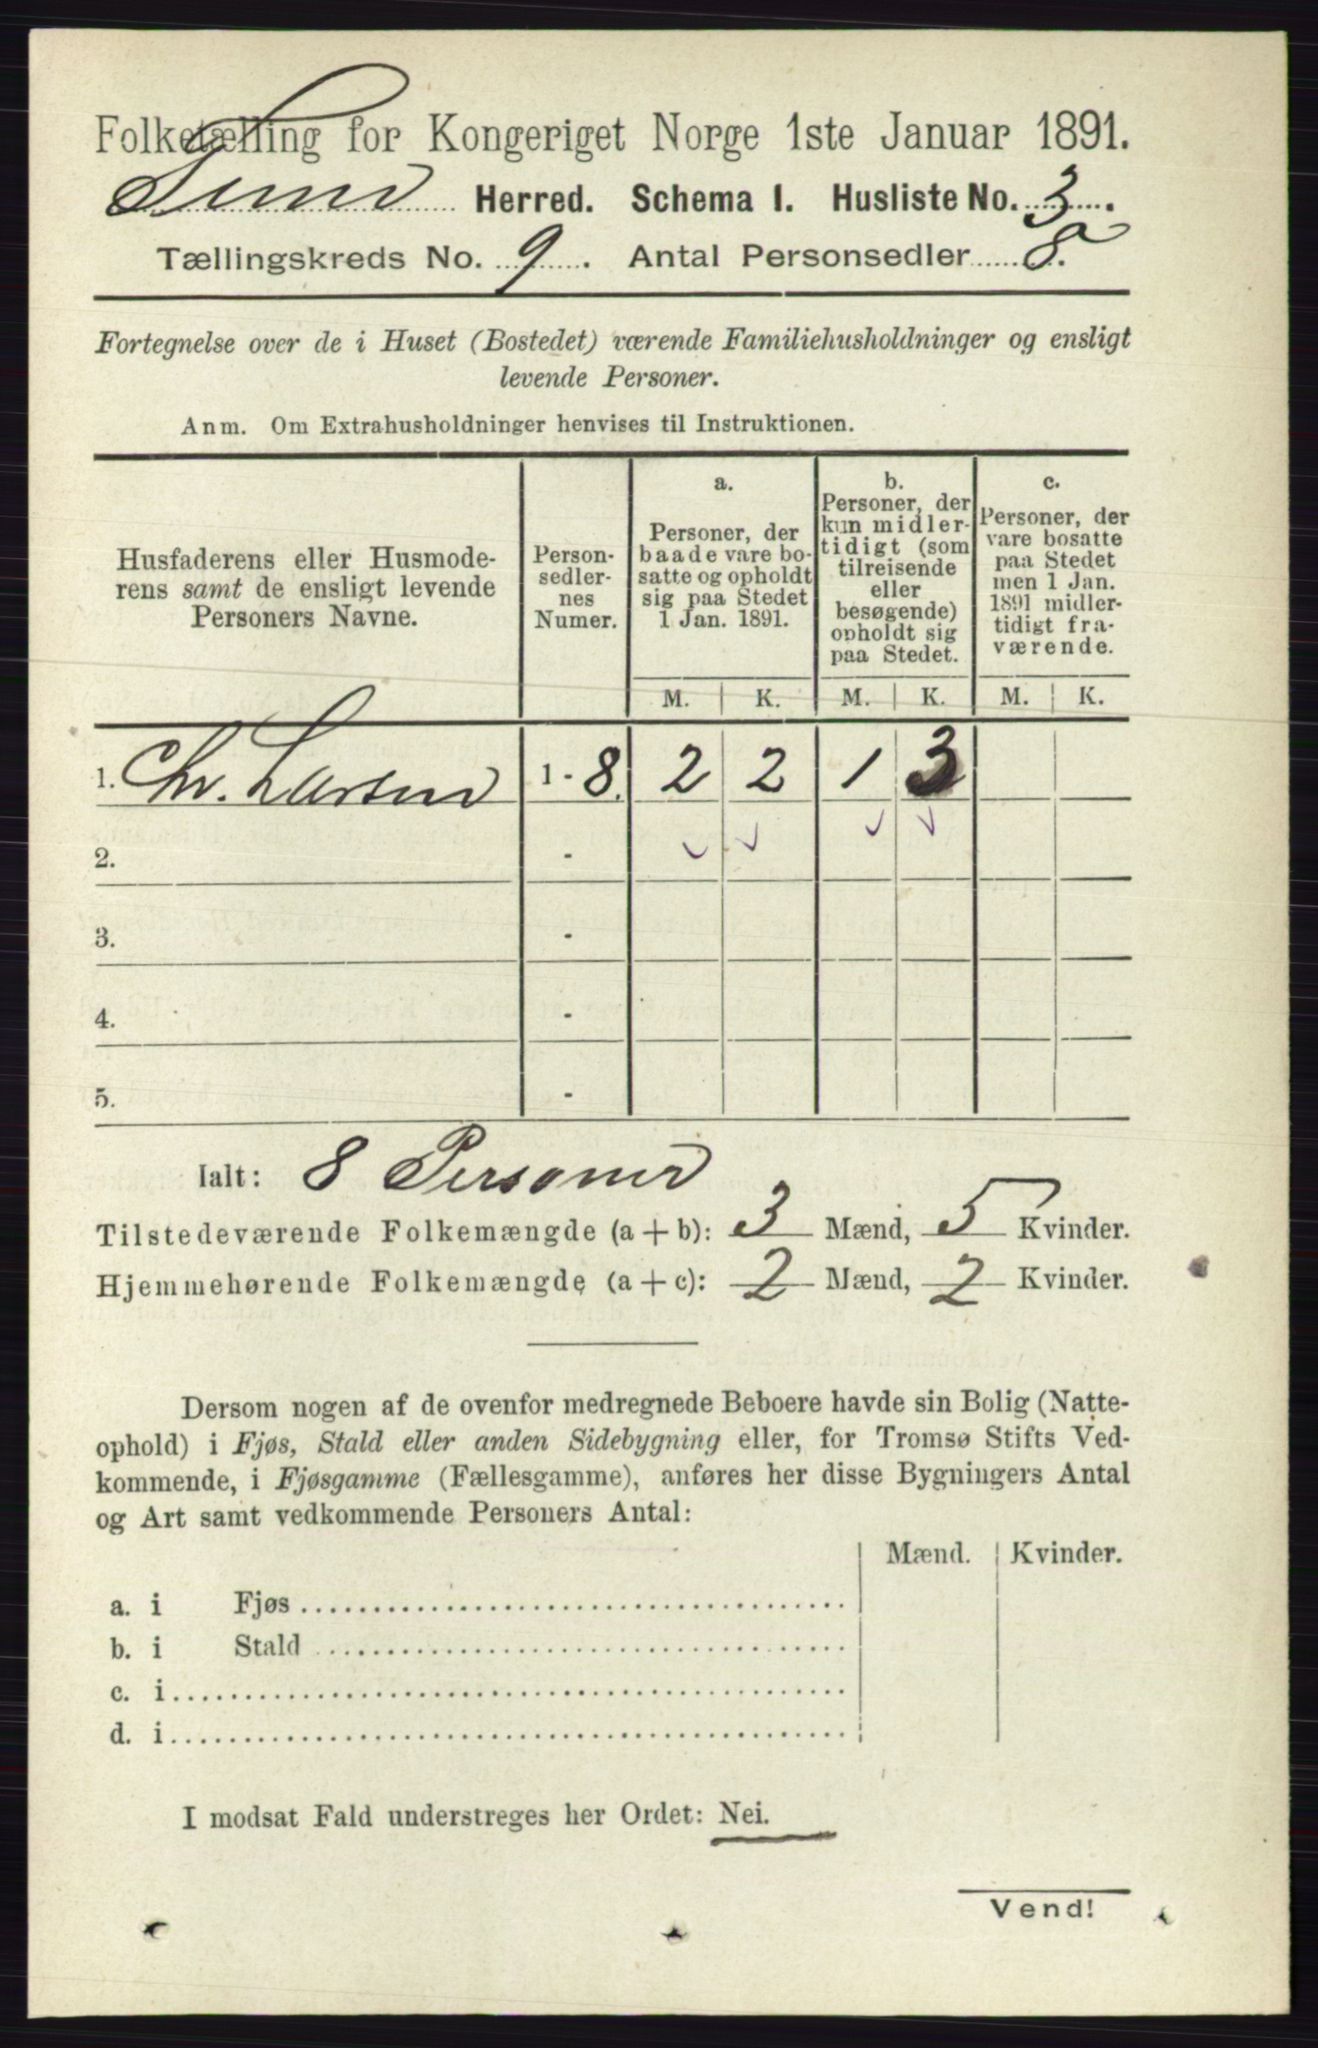 Folketælling for Kongeriget Norge 1ste Januar 1891.
Lund Herred. Schema I. Husliste No. 3.
Tællingskreds No. 9. Antal Personsedler 8.
Fortegnelse over de i Huset (Bostedet) værende Familiehusholdninger og ensligt
levende Personer.
Anm. Om Extrahusholdninger henvises til Instruktionen.
Husfaderens eller Husmode-
rens samt de ensligt levende
Personers Navne.
Person-
sedler-
nes
Numer.
a.
Personer, der
baade vare bo-
satte og opholdt
sig paa Stedet
1 Jan. 1891.
b.
Personer, der
kun midler-
tidigt (som
tilreisende
eller
besøgende)
opholdt sig
paa Stedet.
c.
Personer, der
vare bosatte
paa Stedet
men 1 Jan.
1891 midler-
tidigt fra-
værende.
M. K. M. K. M. K.
1. Chr. Larsen 1 - 8. 2 2 1 3
2. -
3. -
4. -
5. -
Ialt: 8 Personer
Tilstedeværende Folkemængde (a + b): 3 Mænd, 5 Kvinder.
Hjemmehørende Folkemængde (a + c): 2 Mænd, 2 Kvinder.
Dersom nogen af de ovenfor medregnede Beboere havde sin Bolig (Natte-
ophold) i Fjøs, Stald eller anden Sidebygning eller, for Tromsø Stifts Ved-
kommende, i Fjøsgamme (Fællesgamme), anføres her disse Bygningers Antal
og Art samt vedkommende Personers Antal:
Mænd. Kvinder.
a. i Fjøs
b. i Stald
c. i
d. i
I modsat Fald understreges her Ordet: Nei.
Vend!